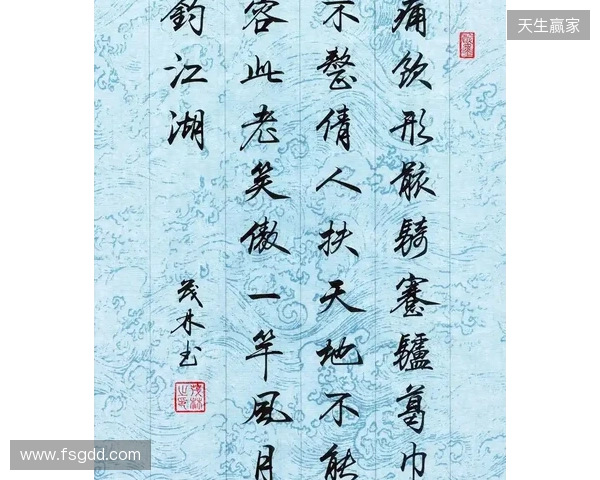 痛饮形骸骑蹇驴葛巾
不整倩人扶天地不能
容此老笑傲一竿风月
钓江湖
茂林书
天生赢家
www.fsgdd.com